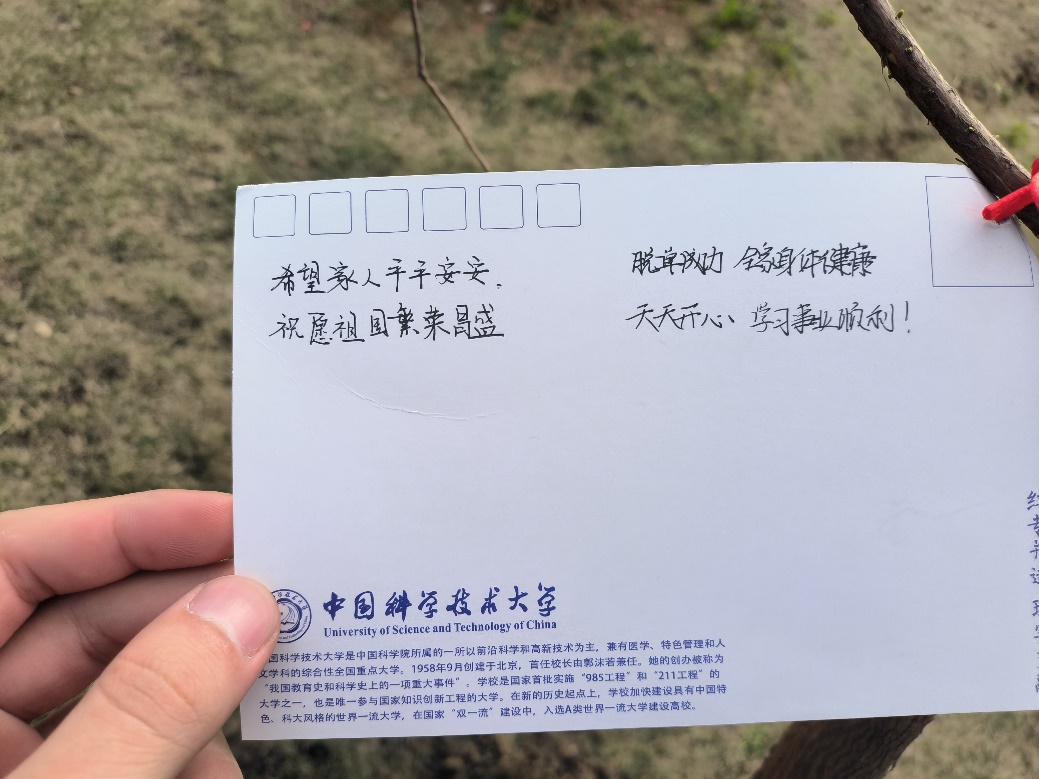 希望家人平平安安.
祝愿祖国繁荣昌盛
脱单成功 全家身体健康
天天开心、学习事业顺利！
中国科学技术大学
University of Science and Technology of China
国科学技术大学是中国科学院所属的一所以前沿科学和高新技术为主，兼有医学、特色管理和人
文学科的综合性全国重点大学。1958年9月创建于北京，首任校长由郭沫若兼任。她的创办被称为
“我国教育史和科学史上的一项重大事件”。学校是国家首批实施“985工程”和“211工程”的
大学之一，也是唯一参与国家知识创新工程的大学。在新的历史起点上，学校加快建设具有中国特
色、科大风格的世界一流大学，在国家“双一流”建设中，入选A类世界一流大学建设高校。